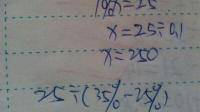 10%x=25
x=25÷0.1
x=250
25÷(35%-25%)